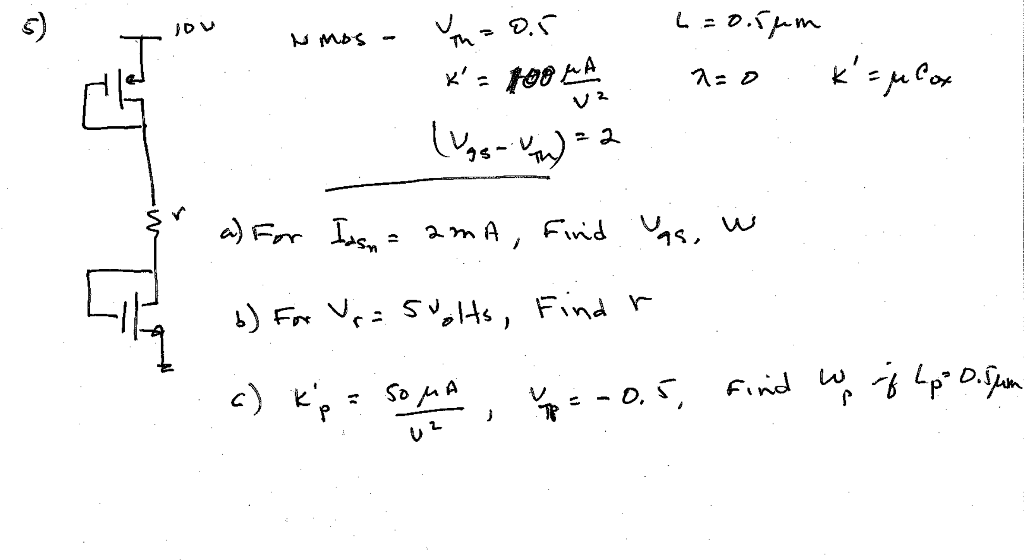 5) 10V NMOS - V_Th = 0.5 L = 0.5μm
K' = 100 μA/V² λ = 0 K' = μCox
(Vgs - V_Th) = 2
r a) For Idsn = 2mA, Find Vgs, W
b) For Vr = 5 Volts, Find r
c) K'p = 50 μA/V², V_TP = -0.5, Find Wp if Lp = 0.5μm